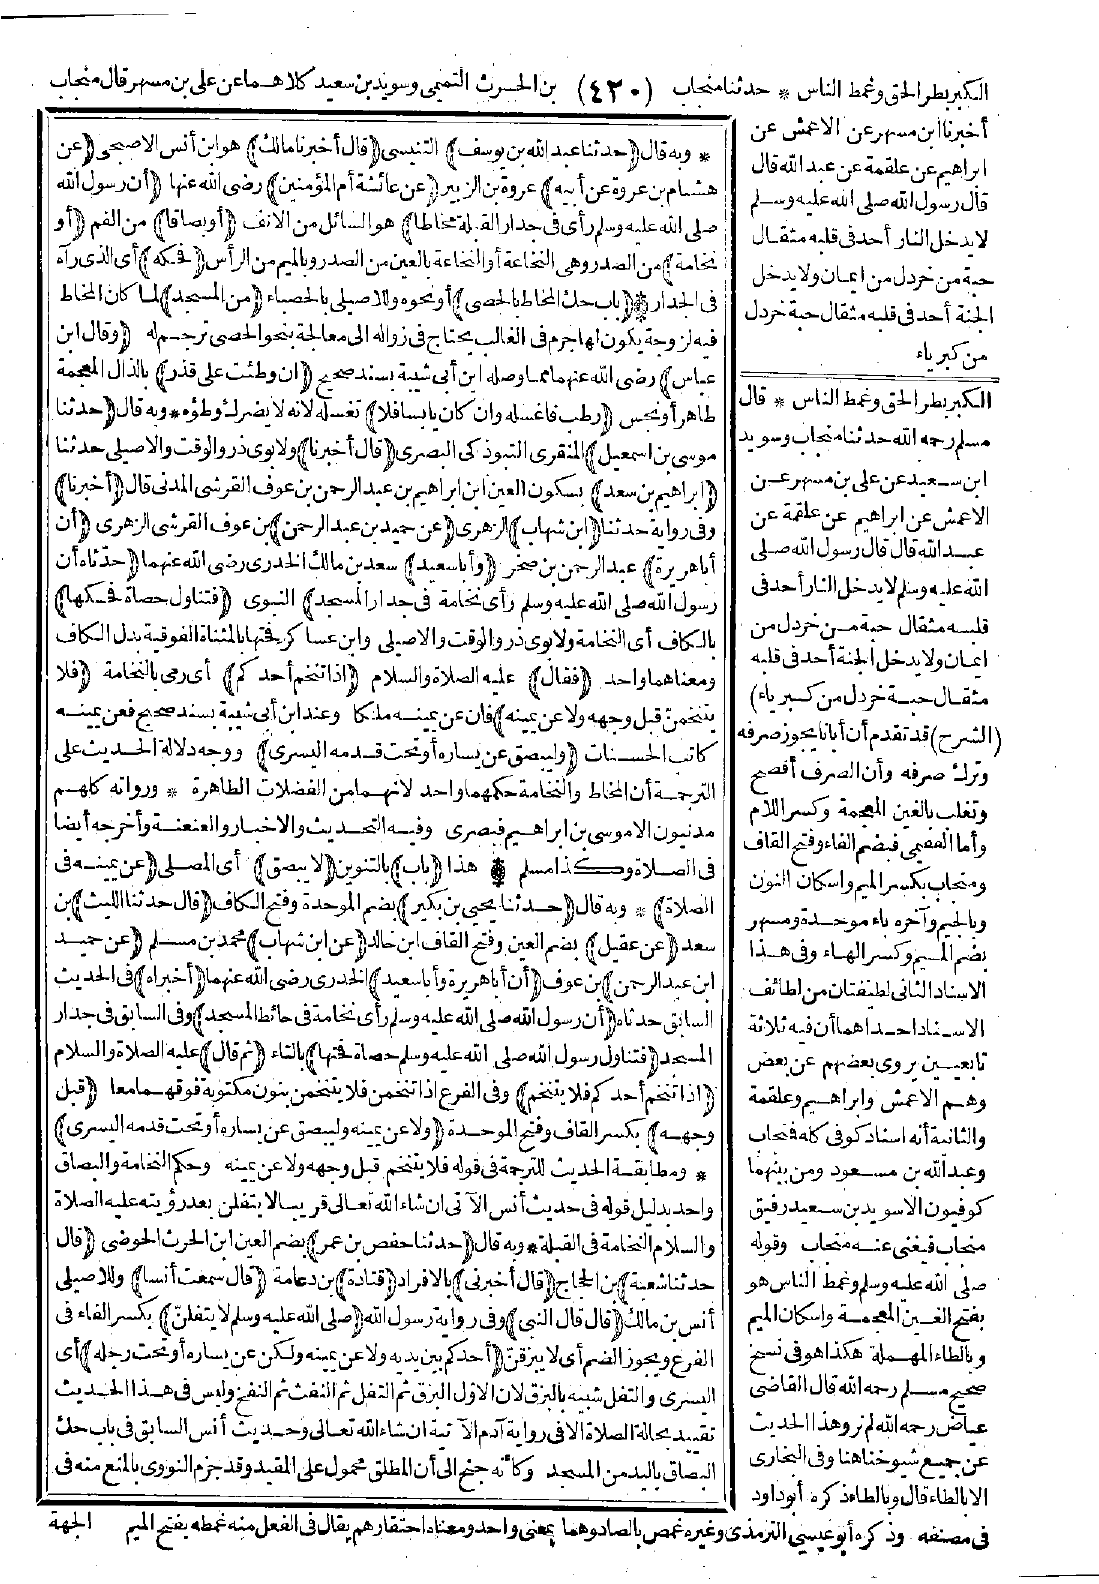 الكبر بطر الحق وغمط الناس * حدثنا منجاب (٤٢٠) بن الحرث التميمي وسويد بن سعيد كلاهما عن علي بن مسهر قال منجاب
أخبرنا ابن مسهر عن الاعمش عن
ابراهيم عن علقمة عن عبد الله قال
قال رسول الله صلى الله عليه وسلم
لا يدخل النار أحد في قلبه مثقال
حبة من خردل من ايمان ولا يدخل
الجنة أحد في قلبه مثقال حبة خردل
من كبرياء
الكبر بطر الحق وغمط الناس * قال
مسلم رحمه الله حدثنا منجاب وسويد
ابن سعيد عن علي بن مسهر عن
الاعمش عن ابراهيم عن علقمة عن
عبد الله قال قال رسول الله صلى
الله عليه وسلم لا يدخل النار أحد في
قلبه مثقال حبة من خردل من
ايمان ولا يدخل الجنة أحد في قلبه
مثقال حبة خردل من كبرياء)
(الشرح) قد تقدم أن أبانا يجوز صرفه
وترك صرفه وأن الصرف أفصح
وتغلب بالغين المعجمة وكسر اللام
وأما الفقيمي فبضم الفاء وفتح القاف
ومنجاب بكسر الميم واسكان النون
وبالجيم وآخره باء موحدة ومسهر
بضم الميم وكسر الهاء وفي هذا
الاسناد الثاني لطيفتان من لطائف
الاسناد احداهما أن فيه ثلاثة
تابعيين يروي بعضهم عن بعض
وهم الاعمش وابراهيم وعلقمة
والثانية أنه اسناد كوفي كله فمنجاب
وعبد الله بن مسعود ومن بينهما
كوفيون الا سويد بن سعيد رفيق
منجاب فيغني عنه منجاب وقوله
صلى الله عليه وسلم وغمط الناس هو
بفتح الغين المعجمة واسكان الميم
وبالطاء المهملة هكذا هو في نسخ
صحيح مسلم رحمه الله قال القاضي
عياض رحمه الله لم نرو هذا الحديث
عن جميع شيوخنا هنا وفي البخاري
الا بالطاء قال وبالطاء ذكره أبو داود
في مصنفه وذكره أبو عيسى الترمذي وغيره غمص بالصاد وهما بمعنى واحد ومعناه احتقارهم يقال في الفعل منه غمطه بفتح الميم الجهة
* وبه قال (حدثنا عبد الله بن يوسف) التنيسي (قال أخبرنا مالك) هو ابن أنس الاصبحي (عن
هشام بن عروة عن أبيه) عروة بن الزبير (عن عائشة أم المؤمنين) رضي الله عنها (أن رسول الله
صلى الله عليه وسلم رأى في جدار القبلة مخاطا) هو السائل من الانف (أو بصاقا) من الفم (أو
نخامة) من الصدر وهي النخاعة أو النخاعة بالعين من الصدر وبالميم من الرأس (فحكه) أي الذي رآه
في الجدار * (باب حك المخاط بالحصى) أو نحوه وللاصيلي بالحصباء (من المسجد) لما كان المخاط
فيه لزوجة يكون لها جرم في الغالب يحتاج في زواله الى معالجة بنحو الحصى ترجم له (وقال ابن
عباس) رضي الله عنهما مما وصله ابن أبي شيبة بسند صحيح (ان وطئت على قذر) بالذال المعجمة
طاهر أو نجس (رطب فاغسله وان كان يابسا فلا) تغسله لانه لا يضرك وطؤه * وبه قال (حدثنا
موسى بن اسمعيل) المنقري التبوذكي البصري (قال أخبرنا) ولابوي ذر والوقت والاصيلي حدثنا
(ابراهيم بن سعد) بسكون العين ابن ابراهيم بن عبد الرحمن بن عوف القرشي المدني قال (أخبرنا)
وفي رواية حدثنا (ابن شهاب) الزهري (عن حميد بن عبد الرحمن) بن عوف القرشي الزهري (أن
أبا هريرة) عبد الرحمن بن صخر (وأبا سعيد) سعد بن مالك الخدري رضي الله عنهما (حدثاه أن
رسول الله صلى الله عليه وسلم رأى نخامة في جدار المسجد) النبوي (فتناول حصاة فحكها)
بالكاف أي النخامة ولابوي ذر والوقت والاصيلي وابن عساكر فحتها بالمثناة الفوقية بدل الكاف
ومعناهما واحد (فقال) عليه الصلاة والسلام (اذا تنخم أحدكم) أي رمى بالنخامة (فلا
يتنخمن قبل وجهه ولا عن يمينه) فان عن يمينه ملكا وعند ابن أبي شيبة بسند صحيح فعن يمينه
كاتب الحسنات (وليبصق عن يساره أو تحت قدمه اليسرى) ووجه دلالة الحديث على
الترجمة أن المخاط والنخامة حكمهما واحد لانهما من الفضلات الطاهرة * ورواته كلهم
مدنيون الا موسى بن ابراهيم فبصري وفيه التحديث والاخبار والعنعنة وأخرجه أيضا
في الصلاة وكذا مسلم * هذا (باب) بالتنوين (لا يبصق) أي المصلي (عن يمينه في
الصلاة) * وبه قال (حدثنا يحيى بن بكير) بضم الموحدة وفتح الكاف (قال حدثنا الليث) بن
سعد (عن عقيل) بضم العين وفتح القاف ابن خالد (عن ابن شهاب) محمد بن مسلم (عن حميد
ابن عبد الرحمن) بن عوف (أن أبا هريرة وأبا سعيد) الخدري رضي الله عنهما (أخبراه) في الحديث
السابق حدثاه (أن رسول الله صلى الله عليه وسلم رأى نخامة في حائط المسجد) وفي السابق في جدار
المسجد (فتناول رسول الله صلى الله عليه وسلم حصاة فحتها) بالتاء (ثم قال) عليه الصلاة والسلام
(اذا تنخم أحدكم فلا يتنخم) وفي الفرع اذا تنخمن فلا يتنخمن بنون مكتوبة فوقهما معا (قبل
وجهه) بكسر القاف وفتح الموحدة (ولا عن يمينه وليبصق عن يساره أو تحت قدمه اليسرى)
* ومطابقة الحديث للترجمة في قوله فلا يتنخم قبل وجهه ولا عن يمينه وحكم النخامة والبصاق
واحد بدليل قوله في حديث أنس الآتي ان شاء الله تعالى قريبا لا يتفلن بعد رؤيته عليه الصلاة
والسلام النخامة في القبلة * وبه قال (حدثنا حفص بن عمر) بضم العين ابن الحرث الحوضي (قال
حدثنا شعبة) بن الحجاج (قال أخبرني) بالافراد (قتادة) بن دعامة (قال سمعت أنسا) وللاصيلي
أنس بن مالك (قال قال النبي) وفي رواية رسول الله (صلى الله عليه وسلم لا يتفلن) بكسر الفاء في
الفرع ويجوز الضم أي لا يبزقن (أحدكم بين يديه ولا عن يمينه ولكن عن يساره أو تحت رجله) أي
اليسرى والتفل شبيه بالبزق لان الاول البزق ثم التفل ثم النفث ثم النفخ وليس في هذا الحديث
تقييد بحالة الصلاة الا في رواية آدم الآتية ان شاء الله تعالى وحديث أنس السابق في باب حك
البصاق باليد من المسجد وكأنه جنح الى أن المطلق محمول على المقيد وقد جزم النووي بالمنع منه في